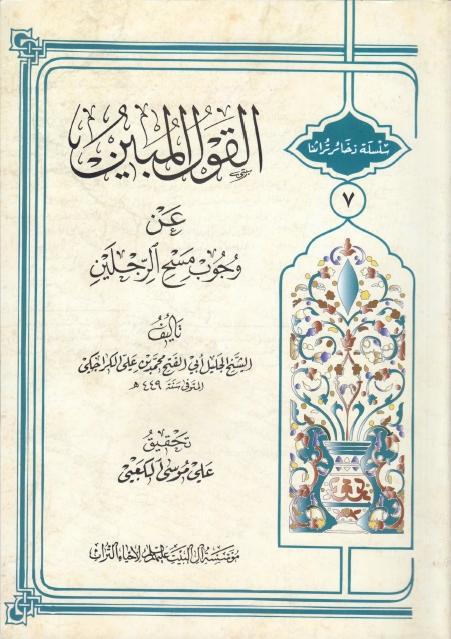 سلسلة ذخائر تراثنا
٧
القول المبين
عَنْ
وجُوبْ مَسْح الرِّجْلَينِ
تأليفُ
الشيخ الجليل أبي الفتح محمد بن علي الكراجكي
المتوفى سَنَة ٤٤٩ هـ
تحقيقُ
علي موسى الكعبي
مؤسسة آل البيت عليهم السلام لإحياء التراث